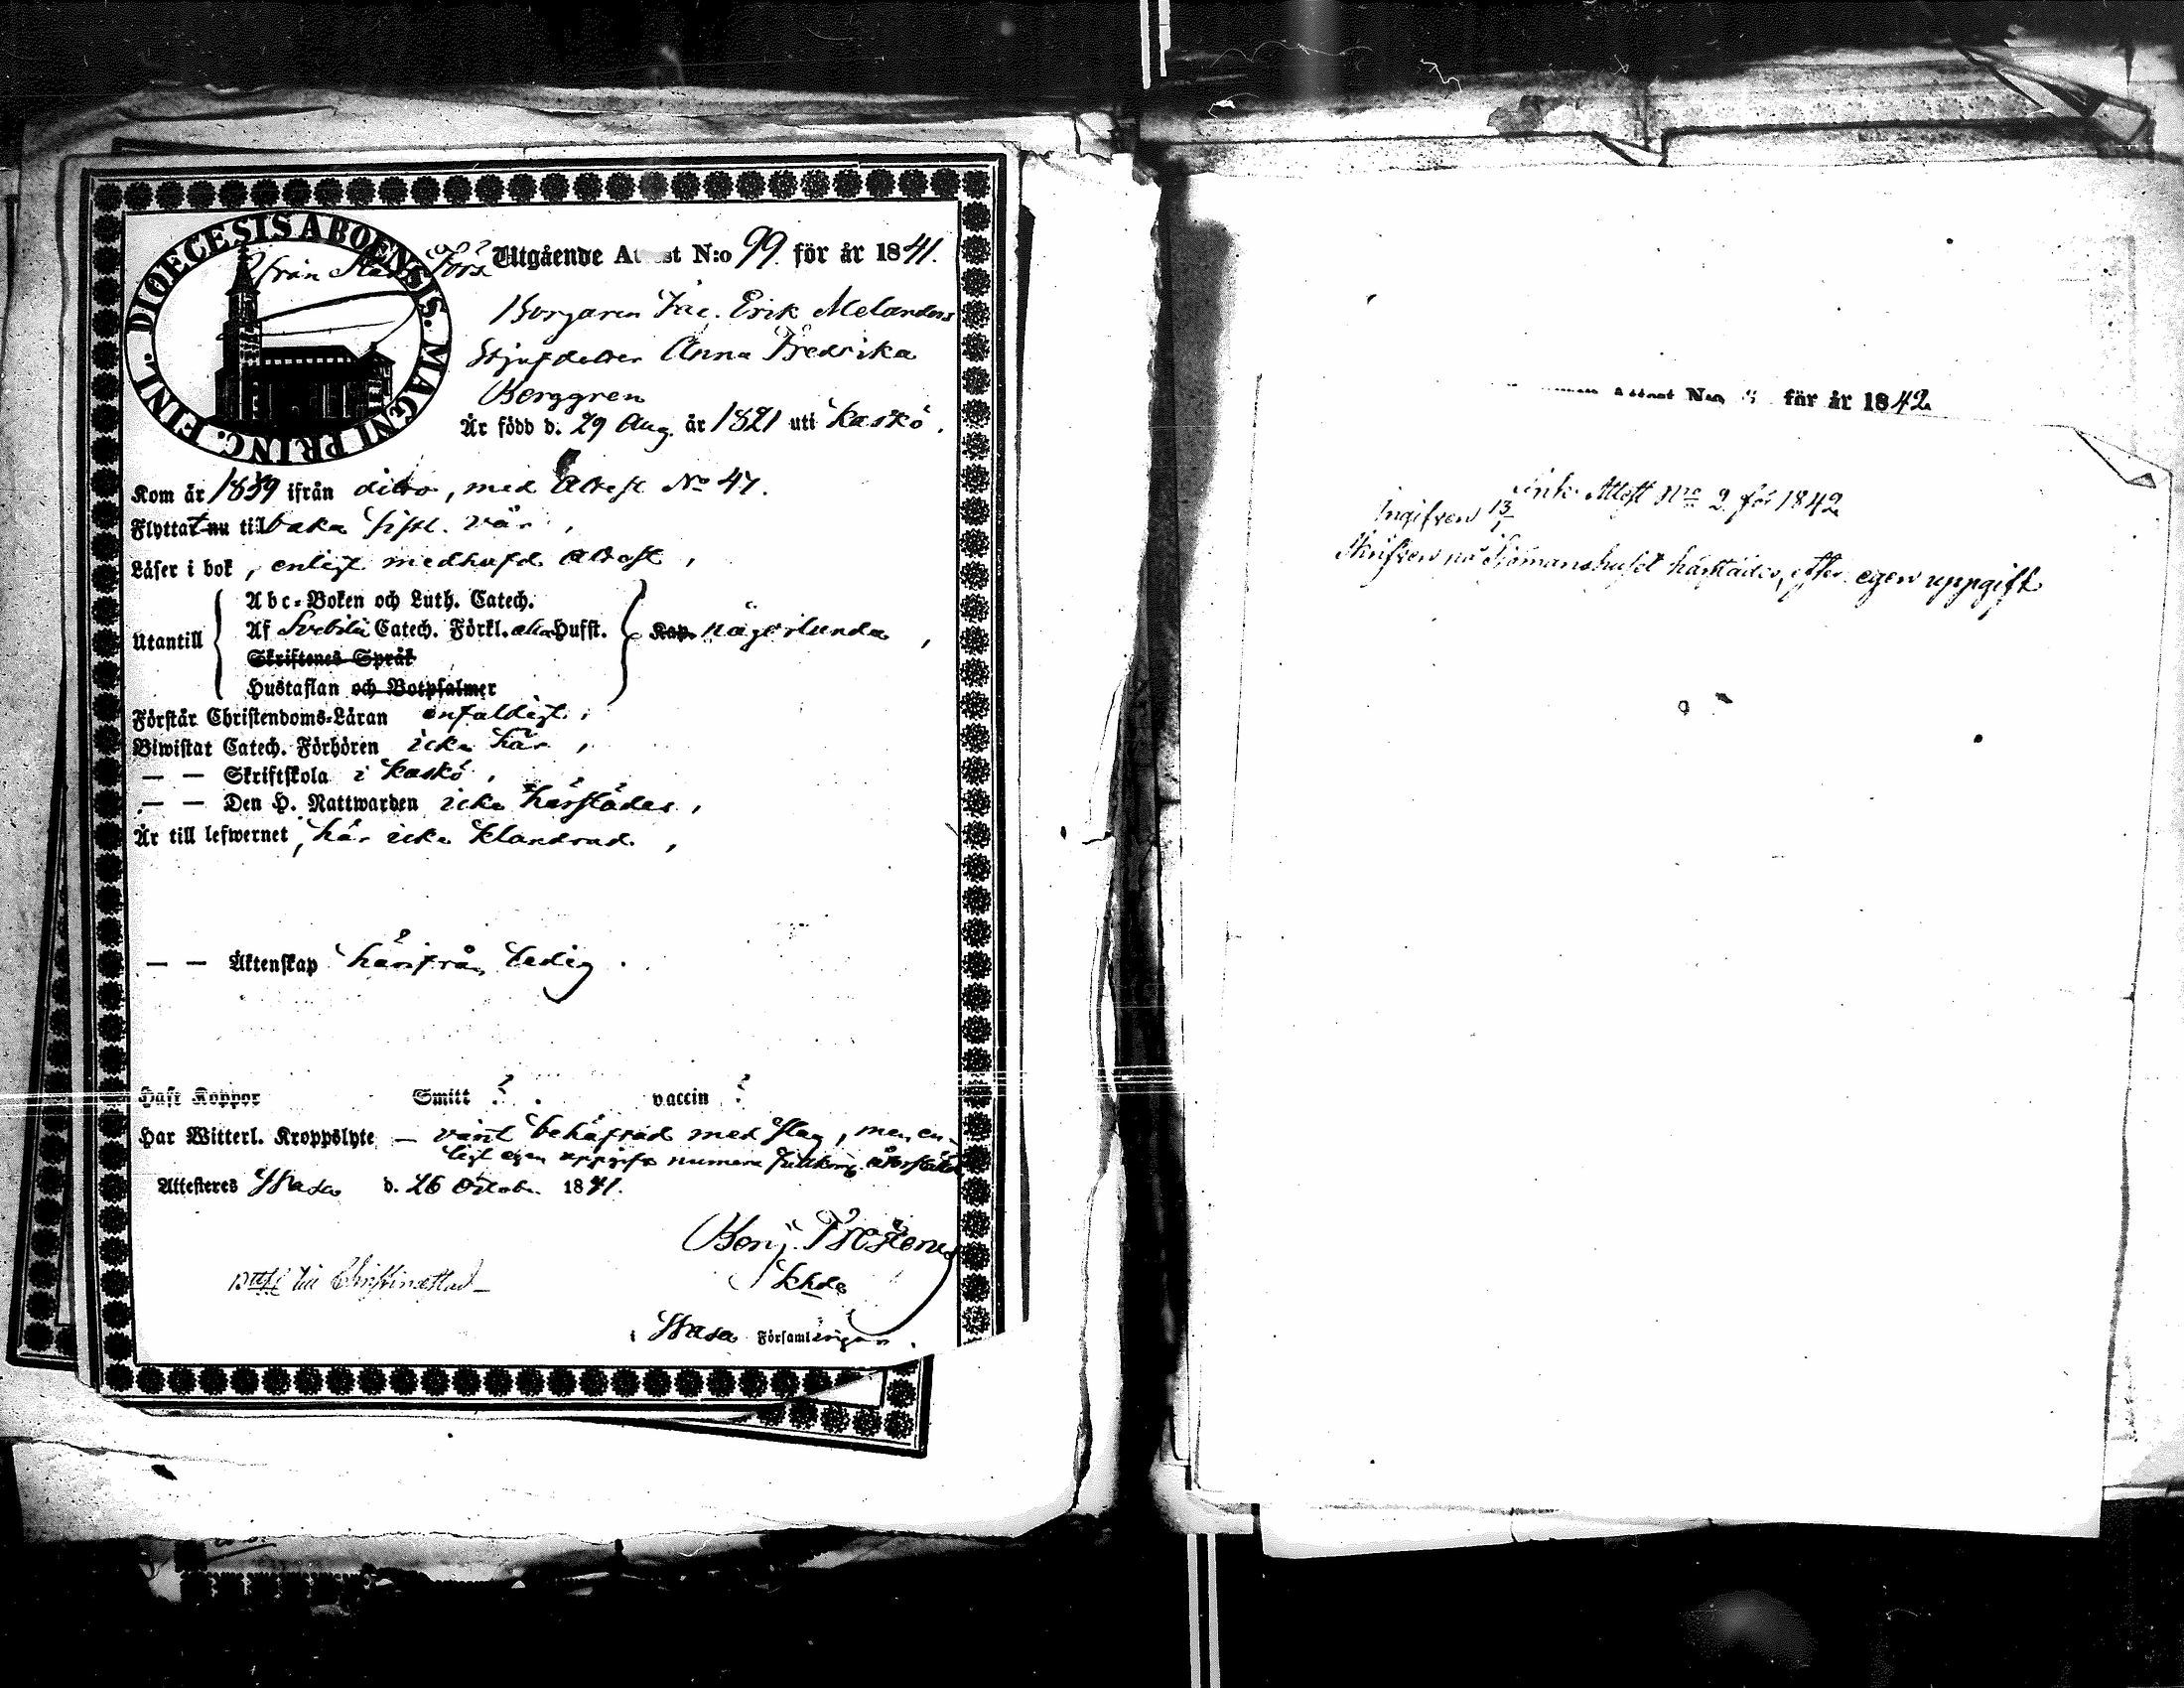 DIOECESIS ABOENSIS. MAGNI PRINC. FINL.
från
Utgående Attest N:o 99. för år 1841.
Borgaren Jac. Erik Melanders
Stjufdotter Anna Fredrika
Berggren
Är född d. 29 Aug. år 1821 uti Kaskö.
Kom år 1839 ifrån ditto, med Attest No 47.
Flyttat nu tillbaka sistl. vår,
Läser i bok, enligt medhafd Attest,
Abc-Boken och Luth. Catech.
Utantill Af Svebilii Catech. Förkl. Hufst. Kap. någorlunda,
Skriftenes Språk
Hustaflan och Botpsalmer
Förstår Christendoms-Läran enfaldigt,
Biwistat Catech. Förhören icke här,
— — Skriftskola i Kaskö,
— — Den H. Nattwarden icke härstädes,
Är till lefwernet, här icke klandrad,
— — Äktenskap härifrån ledig.
Haft Koppor Smitt ? vaccin ?
Har Witterl. Kroppslyte — varit behäftad med slag, men en-
ligt egen uppgift numera återställd
Attesteres Wasa d. 26 Octob. 1841.
Benj.
Khde
till Christinestad
i Wasa Församlingen.
Attest N:o för år 1842
Attest No 2 för 1842
Ingifven 13/1
Skrifven på Sjömanshuset härstädes, efter egen uppgift